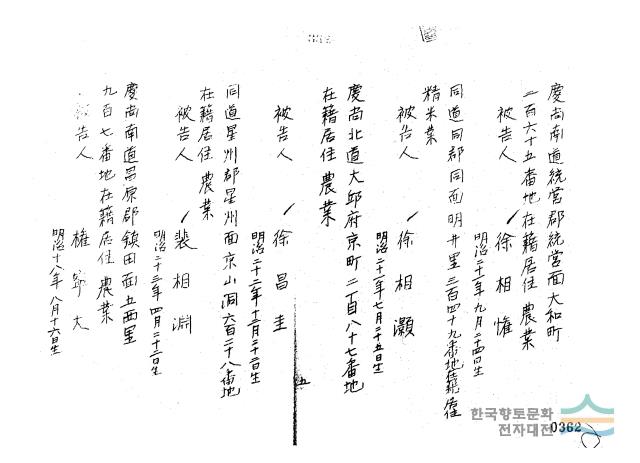 慶尚南道統営郡統営面大和町
二百六十五番地在籍居住 農業
被告人 徐相懽
明治二十一年九月二十四日生
同道同郡同面明井里三百四十九番地在籍居住
精米業
被告人 徐相灝
明治二十一年七月二十五日生
慶尚北道大邱府京町二丁目八十七番地
在籍居住 農業
被告人 徐昌圭
明治二十二年十二月二十二日生
同道星州郡星州面京山洞六百二十八番地
在籍居住 農業
被告人 裴相淵
明治二十三年四月二十二日生
慶尚南道昌原郡鎮田面五西里
九百七番地在籍居住 農業
被告人 権
明治十八年八月十六日生
五
0362
한국향토문화
전자대전